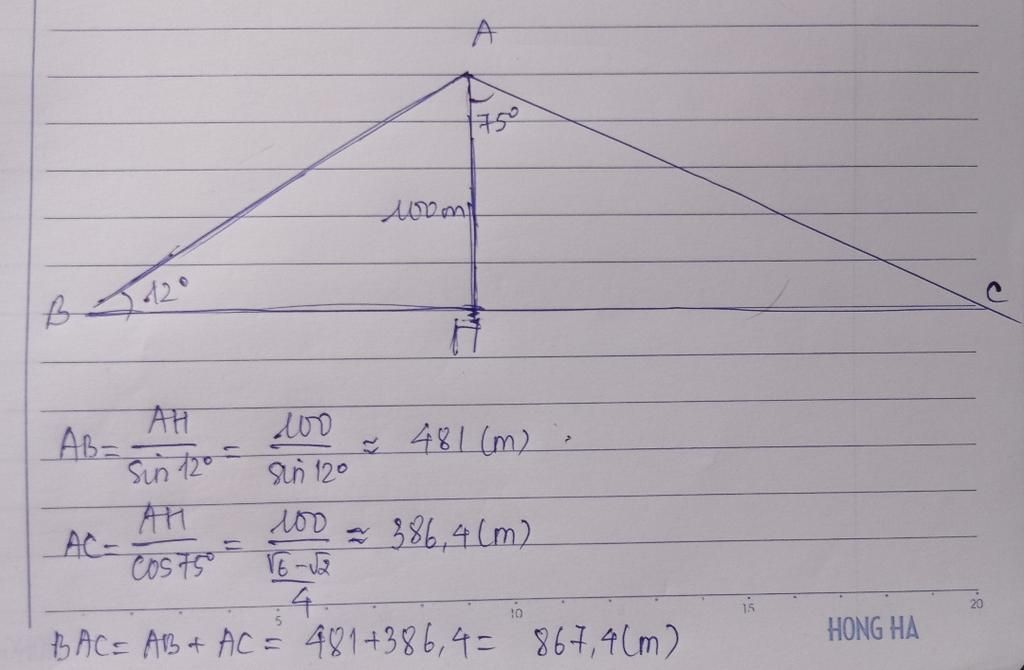 A
75°
100m
B
12°
C
H
AB = AH / sin 12° = 100 / sin 12° ≈ 481 (m)
AC = AH / cos 75° = 100 / ((√6 - √2) / 4) ≈ 386,4 (m)
5 10 15 20
BAC = AB + AC = 481 + 386,4 = 867,4 (m)
HONG HA